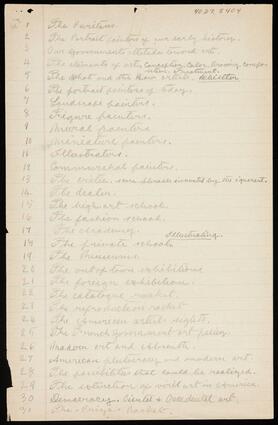 4027, 5404
1 The Puritans.
2 The Portrait painters of our early history.
3 Our Governments attitude toward art.
4 The elements of art, Conception, Color, Drawing, Compo-
sition, Treatment.
5 The What and the How artist.
6 The portrait painters of today.
7 Landscape painters.
8 Figure painters.
9 Mural painters
10 Miniature painters.
11 Illustrators.
12 Commercial painters.
13 The critic. some phrases invented by the ignorant.
14 The dealer.
15 The high art school.
16 The fashion school.
17 The Academy.
Illustrating
18 The private schools
19 The Museums.
20 The out of town exhibitions
21 The foreign exhibitions.
22 The catalogue racket.
23 The reproduction racket
24 The American artists rights.
25 The French Government art policy.
26 Modern art and
27 American plutocracy and modern art.
28 The possibilities that could be realized.
29 The extinction of world art in America.
30 Democracy, Oriental & Occidental art.
31 The Prize Racket.